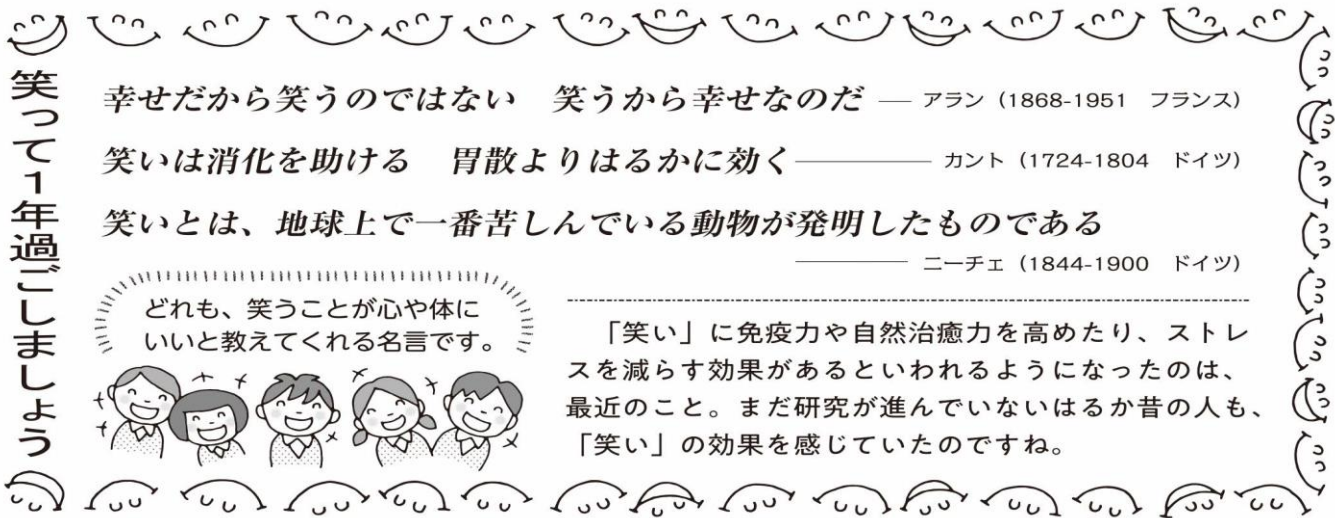 笑って1年過ごしましょう
幸せだから笑うのではない　笑うから幸せなのだ ― アラン（1868-1951　フランス）
笑いは消化を助ける　胃散よりはるかに効く ――― カント（1724-1804　ドイツ）
笑いとは、地球上で一番苦しんでいる動物が発明したものである
――― ニーチェ（1844-1900　ドイツ）
どれも、笑うことが心や体に
いいと教えてくれる名言です。
「笑い」に免疫力や自然治癒力を高めたり、ストレ
スを減らす効果があるといわれるようになったのは、
最近のこと。まだ研究が進んでいないはるか昔の人も、
「笑い」の効果を感じていたのですね。